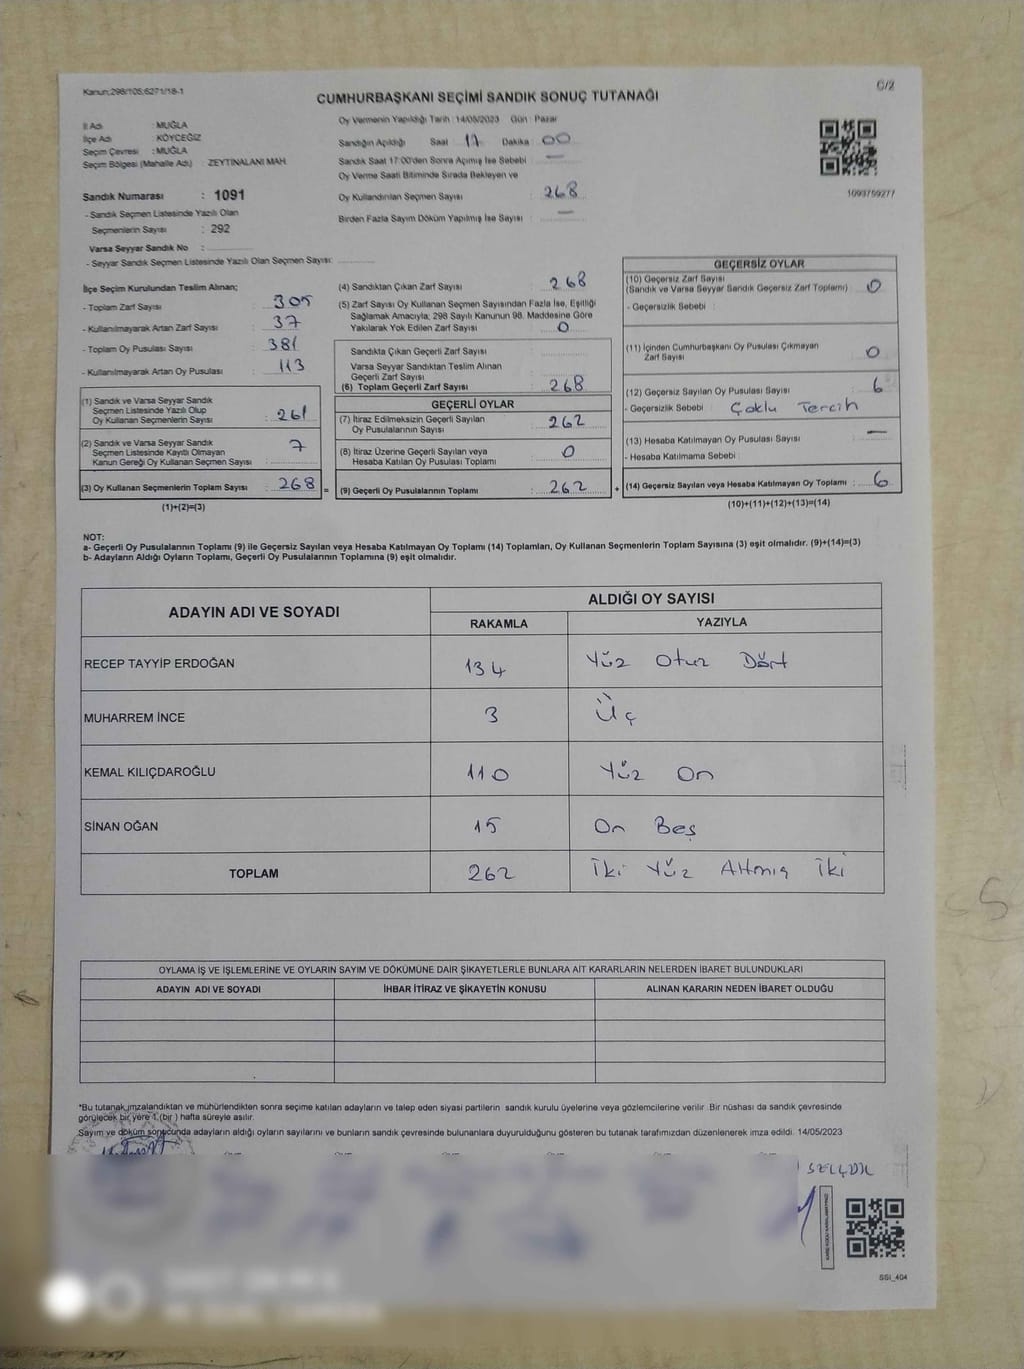 Kanun;298/105;6271/18-1
C/2
CUMHURBAŞKANI SEÇİMİ SANDIK SONUÇ TUTANAĞI
İl Adı : MUĞLA
İlçe Adı : KÖYCEĞİZ
Seçim Çevresi : MUĞLA
Seçim Bölgesi (Mahalle Adı) : ZEYTİNALANI MAH.
Sandık Numarası : 1091
- Sandık Seçmen Listesinde Yazılı Olan
Seçmenlerin Sayısı : 292
Varsa Seyyar Sandık No :
- Seyyar Sandık Seçmen Listesinde Yazılı Olan Seçmen Sayısı:
Oy Vermenin Yapıldığı Tarih :14/05/2023 Gün : Pazar
Sandığın Açıldığı Saat 17 Dakika 00
Sandık Saat 17:00'den Sonra Açmış İse Sebebi : —
Oy Verme Saati Bitiminde Sırada Bekleyen ve
Oy Kullandırılan Seçmen Sayısı : 268
Birden Fazla Sayım Döküm Yapılmış İse Sayısı : —
1093759277
İlçe Seçim Kurulundan Teslim Alınan;
- Toplam Zarf Sayısı : 305
- Kullanılmayarak Artan Zarf Sayısı : 37
- Toplam Oy Pusulası Sayısı : 381
- Kullanılmayarak Artan Oy Pusulası : 113
(1) Sandık ve Varsa Seyyar Sandık
Seçmen Listesinde Yazılı Olup
Oy Kullanan Seçmenlerin Sayısı : 261
(2) Sandık ve Varsa Seyyar Sandık
Seçmen Listesinde Kayıtlı Olmayan
Kanun Gereği Oy Kullanan Seçmen Sayısı : 7
(3) Oy Kullanan Seçmenlerin Toplam Sayısı : 268 =
(1)+(2)=(3)
(4) Sandıktan Çıkan Zarf Sayısı : 268
(5) Zarf Sayısı Oy Kullanan Seçmen Sayısından Fazla İse, Eşitliği
Sağlamak Amacıyla; 298 Sayılı Kanunun 98. Maddesine Göre
Yakılarak Yok Edilen Zarf Sayısı : 0
Sandıkta Çıkan Geçerli Zarf Sayısı :
Varsa Seyyar Sandıktan Teslim Alınan
Geçerli Zarf Sayısı :
(6) Toplam Geçerli Zarf Sayısı : 268
GEÇERLİ OYLAR
(7) İtiraz Edilmeksizin Geçerli Sayılan
Oy Pusulalarının Sayısı : 262
(8) İtiraz Üzerine Geçerli Sayılan veya
Hesaba Katılan Oy Pusulası Toplamı : 0
(9) Geçerli Oy Pusulalarının Toplamı : 262 +
GEÇERSİZ OYLAR
(10) Geçersiz Zarf Sayısı
(Sandık ve Varsa Seyyar Sandık Geçersiz Zarf Toplamı) : 0
- Geçersizlik Sebebi :
(11) İçinden Cumhurbaşkanı Oy Pusulası Çıkmayan
Zarf Sayısı : 0
(12) Geçersiz Sayılan Oy Pusulası Sayısı : 6
- Geçersizlik Sebebi : Çoklu Tercih
(13) Hesaba Katılmayan Oy Pusulası Sayısı : —
- Hesaba Katılmama Sebebi :
(14) Geçersiz Sayılan veya Hesaba Katılmayan Oy Toplamı : 6
(10)+(11)+(12)+(13)=(14)
NOT:
a- Geçerli Oy Pusulalarının Toplamı (9) ile Geçersiz Sayılan veya Hesaba Katılmayan Oy Toplamı (14) Toplamları, Oy Kullanan Seçmenlerin Toplam Sayısına (3) eşit olmalıdır. (9)+(14)=(3)
b- Adayların Aldığı Oyların Toplamı, Geçerli Oy Pusulalarının Toplamına (9) eşit olmalıdır.
ADAYIN ADI VE SOYADI
ALDIĞI OY SAYISI
RAKAMLA YAZIYLA
RECEP TAYYİP ERDOĞAN 134 Yüz Otuz Dört
MUHARREM İNCE 3 Üç
KEMAL KILIÇDAROĞLU 110 Yüz On
SİNAN OĞAN 15 On Beş
TOPLAM 262 İki Yüz Altmış İki
OYLAMA İŞ VE İŞLEMLERİNE VE OYLARIN SAYIM VE DÖKÜMÜNE DAİR ŞİKAYETLERLE BUNLARA AİT KARARLARIN NELERDEN İBARET BULUNDUKLARI
ADAYIN ADI VE SOYADI İHBAR İTİRAZ VE ŞİKAYETİN KONUSU ALINAN KARARIN NEDEN İBARET OLDUĞU
*Bu tutanak,imzalandıktan ve mühürlendikten sonra seçime katılan adayların ve talep eden siyasi partilerin sandık kurulu üyelerine veya gözlemcilerine verilir .Bir nüshası da sandık çevresinde
görülecek bir yere 1 (bir ) hafta süreyle asılır.
Sayım ve döküm sonucunda adayların aldığı oyların sayılarını ve bunların sandık çevresinde bulunanlara duyurulduğunu gösteren bu tutanak tarafımızdan düzenlenerek imza edildi. 14/05/2023
SELÇUK
SSI_404